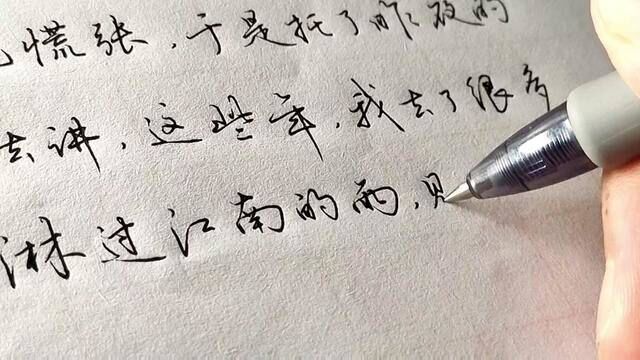 慌张,于是托了昨夜的
去讲,这些年,我去了很多
淋过江南的雨,见